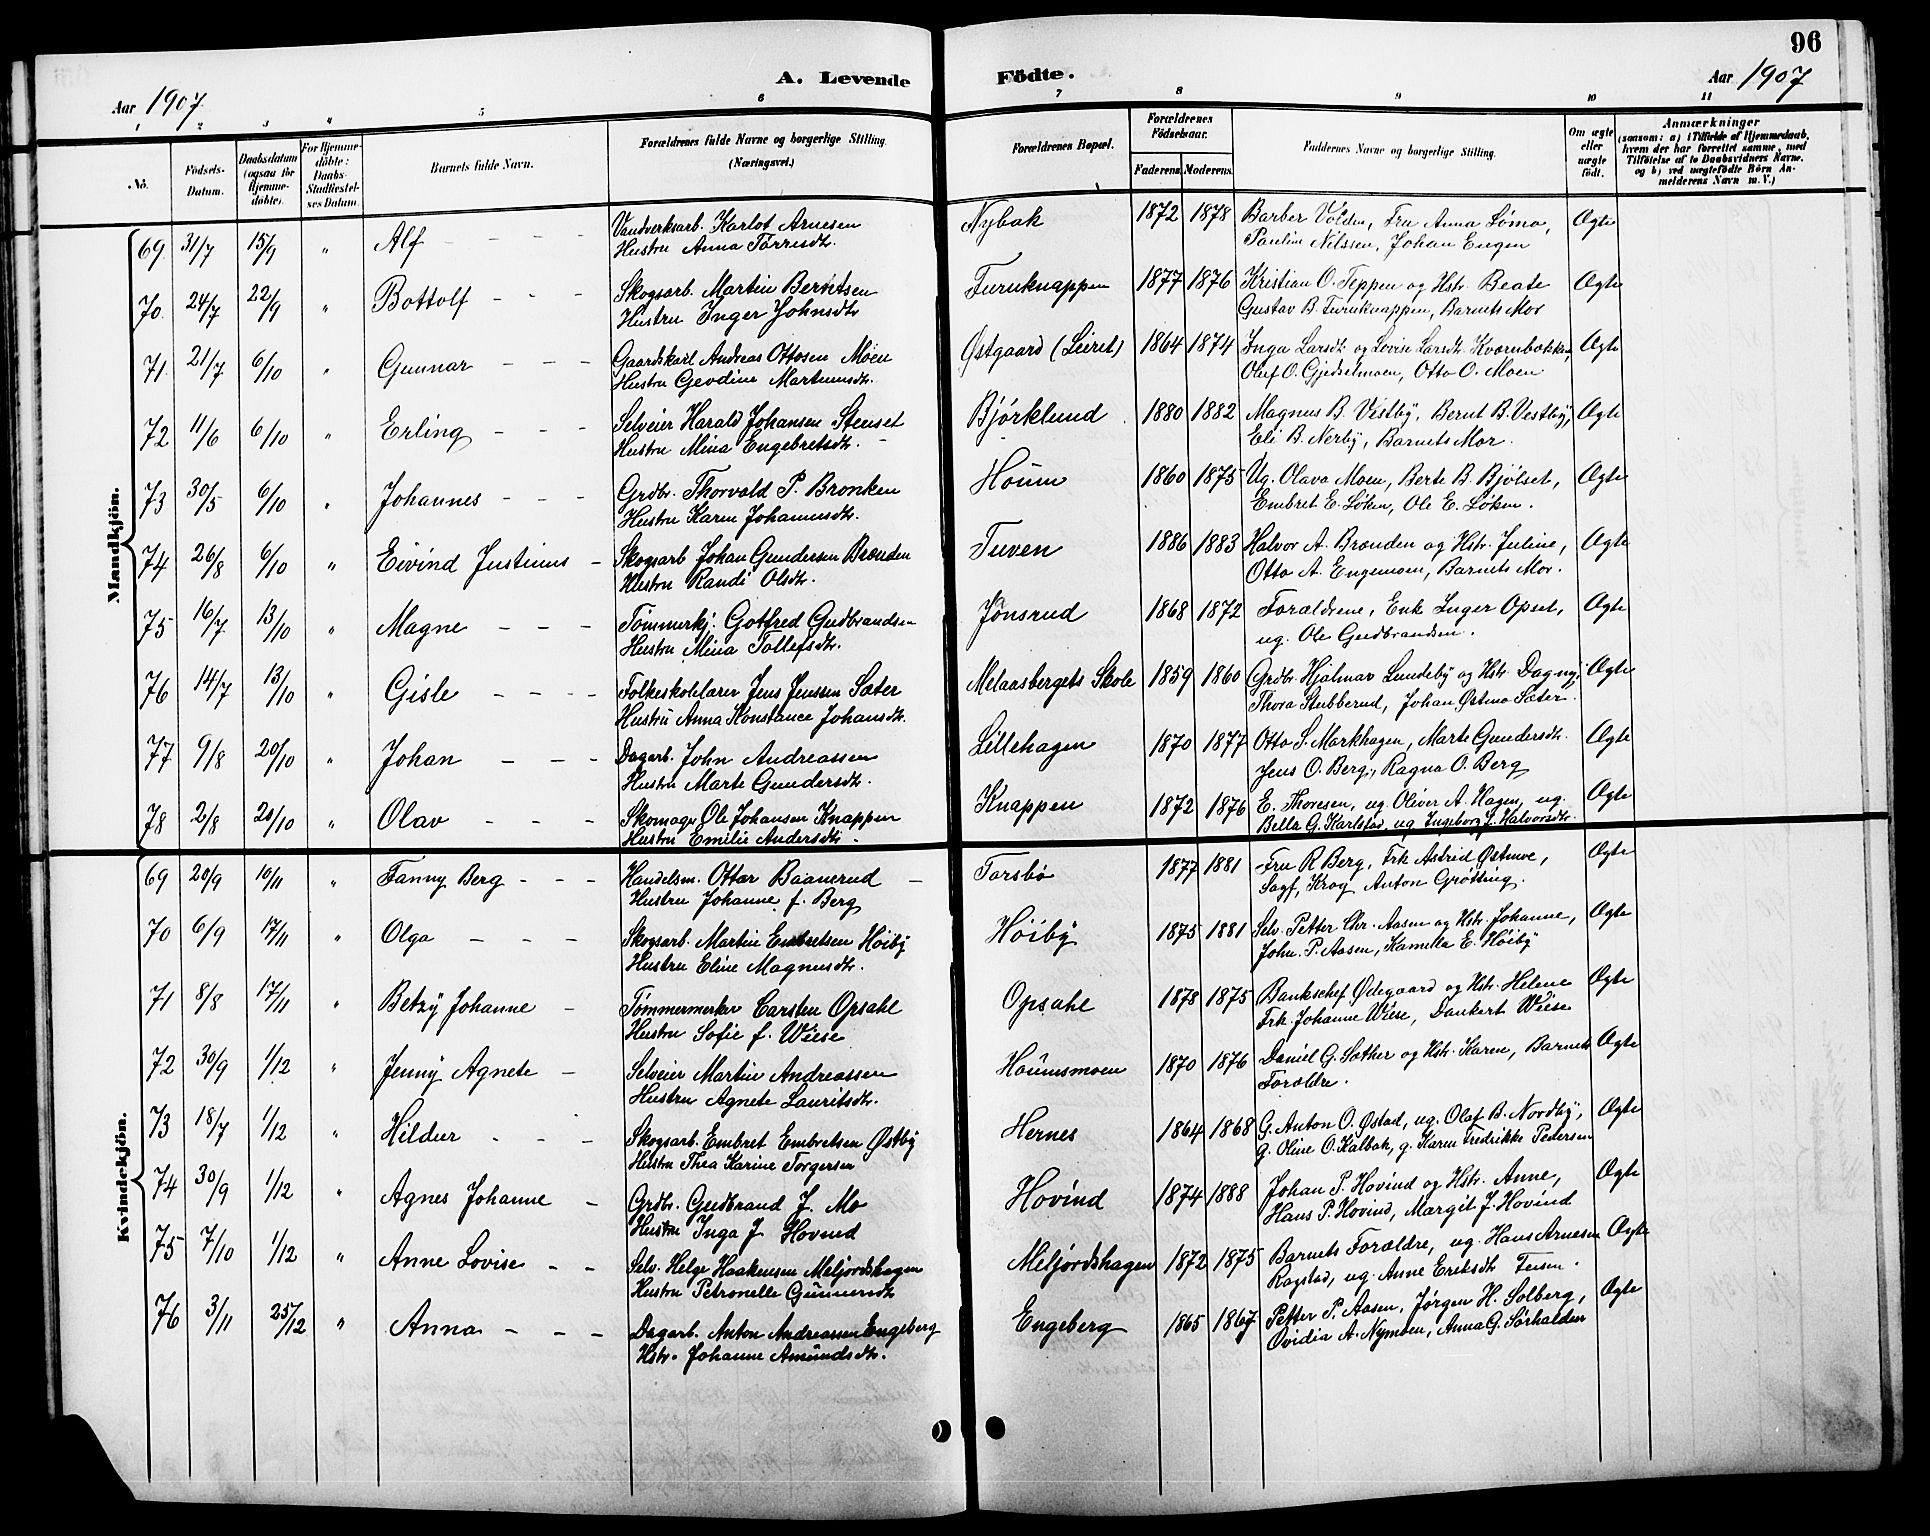 96
A. Levende Födte.
Aar 1907
Aar 1907
1 2 3 4 5 6 7 8 9 10 11
No.
Födsels-Datum.
Daabsdatum (ogsaa för Hjemme-döbte).
For Hjemme-döbte: Daabs-Stadfæstel-ses Datum
Barnets fulde Navn.
Forældrenes fulde Navne og borgerlige Stilling (Næringsvei.)
Forældrenes Bopæl.
Forældrenes Födselsaar.
Faderens. Moderens.
Faddernes Navne og borgerlige Stilling.
Om ægte eller uægte födt.
Anmærkninger
(saasom: a) i Tilfælde af Hjemmedaab, hvem der har forrettet samme, med Tilföielse af to Daabsvidners Navne, og b) ved uægtefödte Börn An-melderens Navn m. V.)
Mandkjön.
69 31/7 15/9 " Alf - - - - Vandverksarb. Karlot Arnesen Nybak 1872 1878 Barber Volden, Fru Anna Lömo, Ægte
Hustru Anna Torresdt. Pauline Nilssen, Johan Engen
70 24/7 22/9 " Bottolf - - - Skogsarb. Martin Berntsen Furuknappen 1877 1876 Kristian O. Teppen og Hstr. Beate Ægte
Hustru Inger Johnsdtr Gustav B. Furuknappen, Barnets Mor
71 21/7 6/10 " Gunnar - - - Gaardskarl Andreas Ottosen Moen Østgaard (Leiret) 1864 1874 Inga Larsdt. og Lovise Larsdt. Kværnbækken Ægte
Hustru Gevdine Martinusdt. Oluf O. Gjedselmoen, Otto O. Moen
72 11/6 6/10 " Erling - - - Selveier Harald Johansen Stenset Bjørklund 1880 1882 Magnus B. Vestby, Bernt B. Vestby, Ægte
Hustru Mina Engebretsdtr. Eli B. Nerby, Barnets Mor.
73 30/5 6/10 " Johannes - - - Grdbr. Thorvald P. Bronken Houm 1860 1875 Ug. Olava Moen, Berte B. Bjølset, Ægte
Hustru Karen Johannesdtr. Embret E. Løken, Ole E. Løken.
74 26/8 6/10 " Eivind Justinus - Skogsarb Johan Gundersen Brænden Tuven 1886 1883 Halvor A. Brænden og Hstr. Juline, Ægte
Hustru Randi Olsdtr. Otto A. Engemoen, Barnets Mor.
75 16/7 13/10 " Magne - - - Tømmerkj. Gotfred Gudbrandsen Jønsrud 1868 1872 Forældrene, Enk. Inger Opset, Ægte
Hustru Mina Tollefsdtr. ug. Ole Gudbrandsen.
76 14/7 13/10 " Gisle - - - - Folkeskolelærer Jens Jenssen Sæter Melaasbergets Skole 1859 1860 Grdbr. Hjalmar Lundeby og Hstr. Dagny, Ægte
Hustru Anna Konstance Johansdtr. Thora Stubberud, Johan Østmo Sæter.
77 9/8 20/10 " Johan - - - Dagarb. John Andreassen Lillehagen 1870 1877 Otto S. Markhagen, Marte Gundersdtr. Ægte
Hustru Marte Gundersdtr. Jens O. Berg, Ragna O. Berg
78 2/8 20/10 " Olav - - - Skomager Ole Johansen Knappen Knappen 1872 1876 E. Thoresen, ug. Oliver A. Hagen, ug. Ægte
Hustru Emilie Andersdtr. Bella G. Karlstad, ug Ingeborg J. Halvorsdtr.
Kvindekjön.
69 20/9 10/11 " Fanny Berg - - - Handelsm. Ottar Baanerud - Torsbø 1877 1881 Fru R Berg, Frk Astrid Østmoe, Ægte
Hustru Johanne f. Berg Sagf. Krog Anton Grøtting.
70 6/9 17/11 " Olga - - - Skogsarb. Martin Embretsen Høiby Høiby 1875 1881 Selv. Petter Chr. Aasen og Hstr. Johanne, Ægte
Hustru Eline Magnusdtr. John. P. Aasen, Kamilla E. Høiby
71 8/8 17/11 " Betzy Johanne - Tømmermerker Carsten Opsahl Opsahl 1878 1875 Bankschef Ødegaard og Hstr. Helene Ægte
Hustru Sofie f. Wiese Frk. Johanne Wiese, Dankert Wiese
72 30/9 1/12 " Jenny Agnete - Selveier Martin Andreassen Houmsmoen 1870 1876 Daniel G. Sæther og Hstr. Karen, Barnets Ægte
Hustru Agnete Lauritsdtr. Forældre.
73 18/7 1/12 " Hildur - - - Skogsarb. Embret Embretsen Østby Hernes 1864 1868 G. Anton O. Østad, ug. Olaf B. Nordby, Ægte
Hustru Thea Karine Torgersen g. Oline O. Kalbak, g. Karen Fredrikke Pedersen
74 30/9 1/12 " Agnes Johanne - Grdbr. Gudbrand J. Mo Hovind 1874 1888 Johan P. Hovind og Hstr. Anne, Ægte
Hustru Inga J Hovind Hans P. Hovind, Margit J. Hovind
75 7/10 1/12 " Anne Lovise - - Selv. Helge Haakensen Meljordshagen Meljordshagen 1872 1875 Barnets Forældre, ug. Hans Arnesen Ægte
Hustru Petronelle Gunnersdtr Rogstad, ug. Anne Eriksdtr
76 3/11 25/12 " Anna - - - Dagarb. Anton Andreassen Engeberg Engeberg 1865 1867 Petter P. Aasen, Jørgen H. Solberg, Ægte
Hstr. Johanne Amundsdtr. Ovidia A. Nymoen, Anna G. Sørhalden